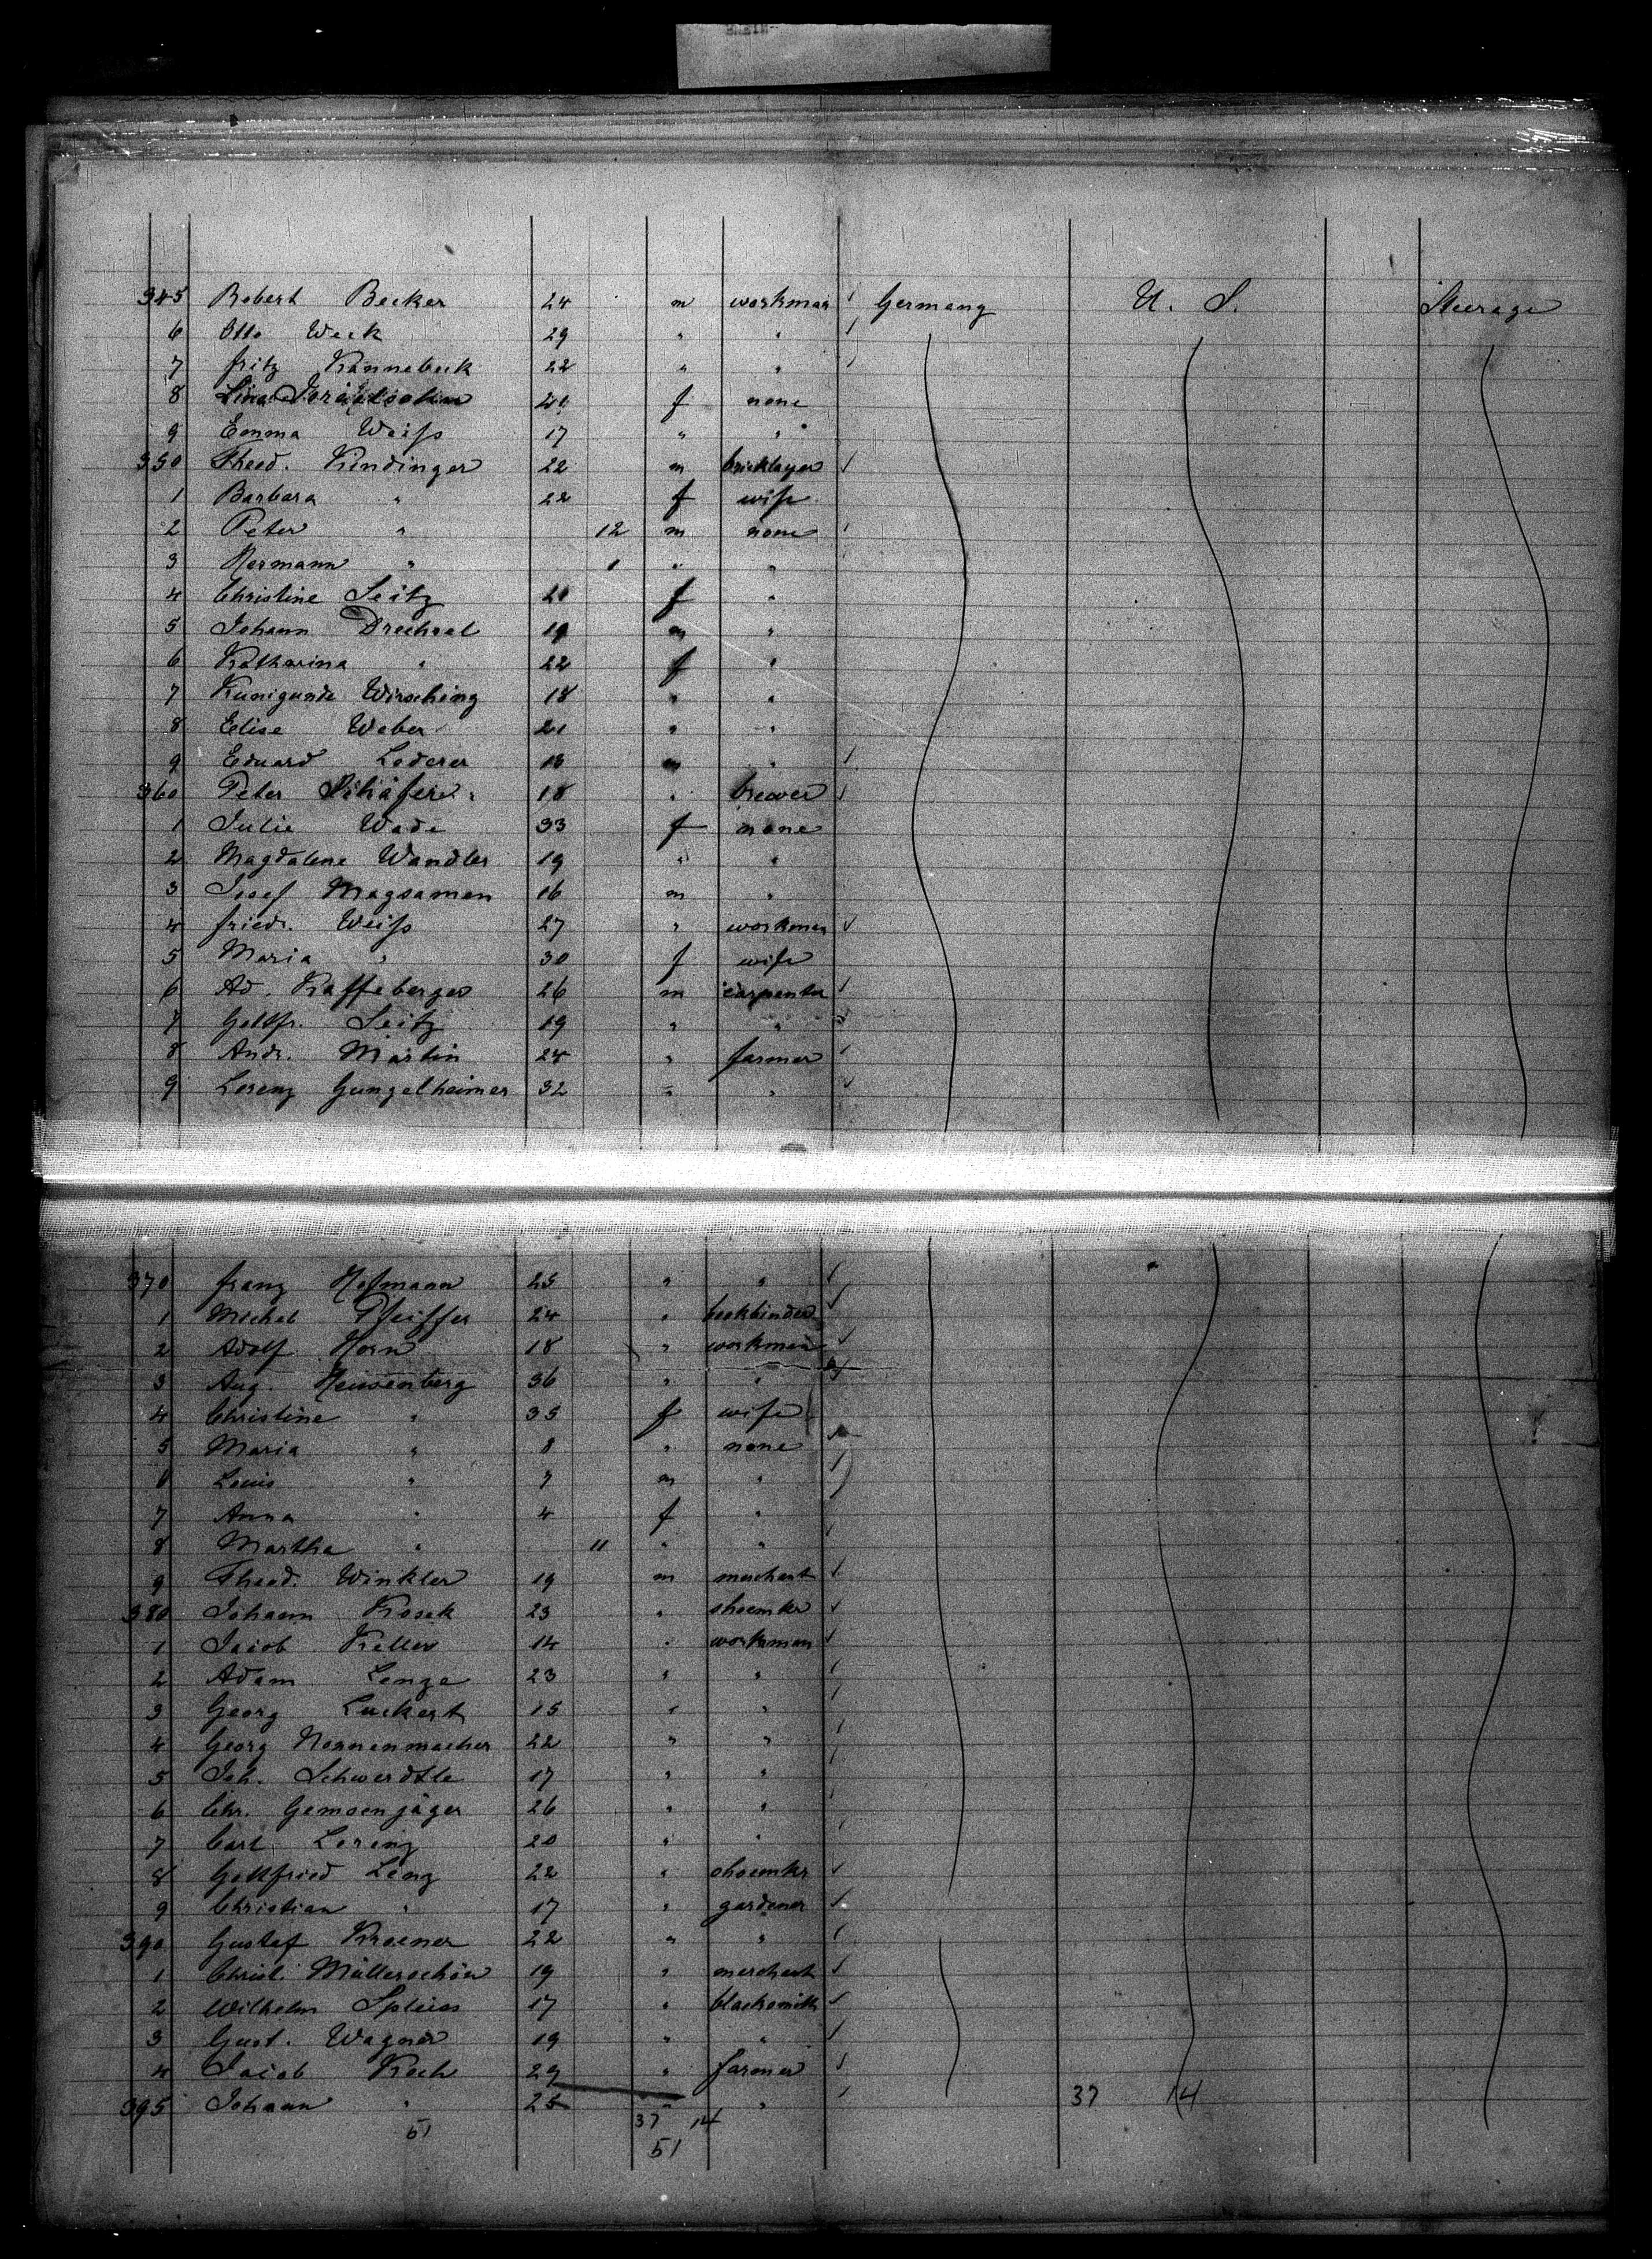 345 Robert Becker 24 m workman Germany U. S. Steerage
6 Otto Weck 29 " "
7 Fritz Kannebeck 22 " "
8 Lina 21 f none
9 Emma Weiß 17 " "
350 Theod. Kindinger 22 m bricklayer
1 Barbara " 22 f wife
2 Peter " 12 m none
3 Hermann " 1 " "
4 Christine Seitz 21 f "
5 Johann Drechsel 19 m "
6 Katharina " 22 f "
7 Kunigunde Wirsching 18 " "
8 Elise Weber 21 " "
9 Eduard Lederer 18 m "
360 Peter Schäfer 18 " brewer
1 Julie Wade 33 f none
2 Magdalene Wandler 19 " "
3 Josef Magsamen 16 m "
4 Friedr. Weiß 27 " workman
5 Maria " 30 f wife
6 Ad. Kaffeberger 26 m carpenter
7 Gottfr. Seitz 19 " "
8 Andr. Martin 24 " farmer
9 Lorenz Gungelheimer 32 " "
370 Franz Hofmann 25 " "
1 Michel Pfeiffer 24 " bookbinder
2 Adolf Horn 18 " workman
3 Aug. 36 " "
4 Christine " 35 f wife
5 Maria " 8 " none
6 Louis " 7 m "
7 Anna " 4 f "
8 Martha " 11 " "
9 Theod. Winkler 19 m merchant
380 Johann Kosek 23 " shoemkr
1 Jacob Keller 14 " workman
2 Adam Lenze 23 " "
3 Georg Luckert 15 " "
4 Georg Nonnenmacher 22 " "
5 Joh. Schwerdtle 17 " "
6 Chr. Gemsenjäger 26 " "
7 Carl Lorenz 20 " "
8 Gottfried Lenz 22 " shoemkr
9 Christian " 17 " gardener
390 Gustaf Kroener 22 " "
1 Christ. Müllerschön 19 " merchant
2 Wilhelm Spleiss 17 " blacksmith
3 Gust. Wagner 19 " "
4 Jacob Koch 29 " farmer
395 Johann " 25 " " 37 14
51 37 14
51